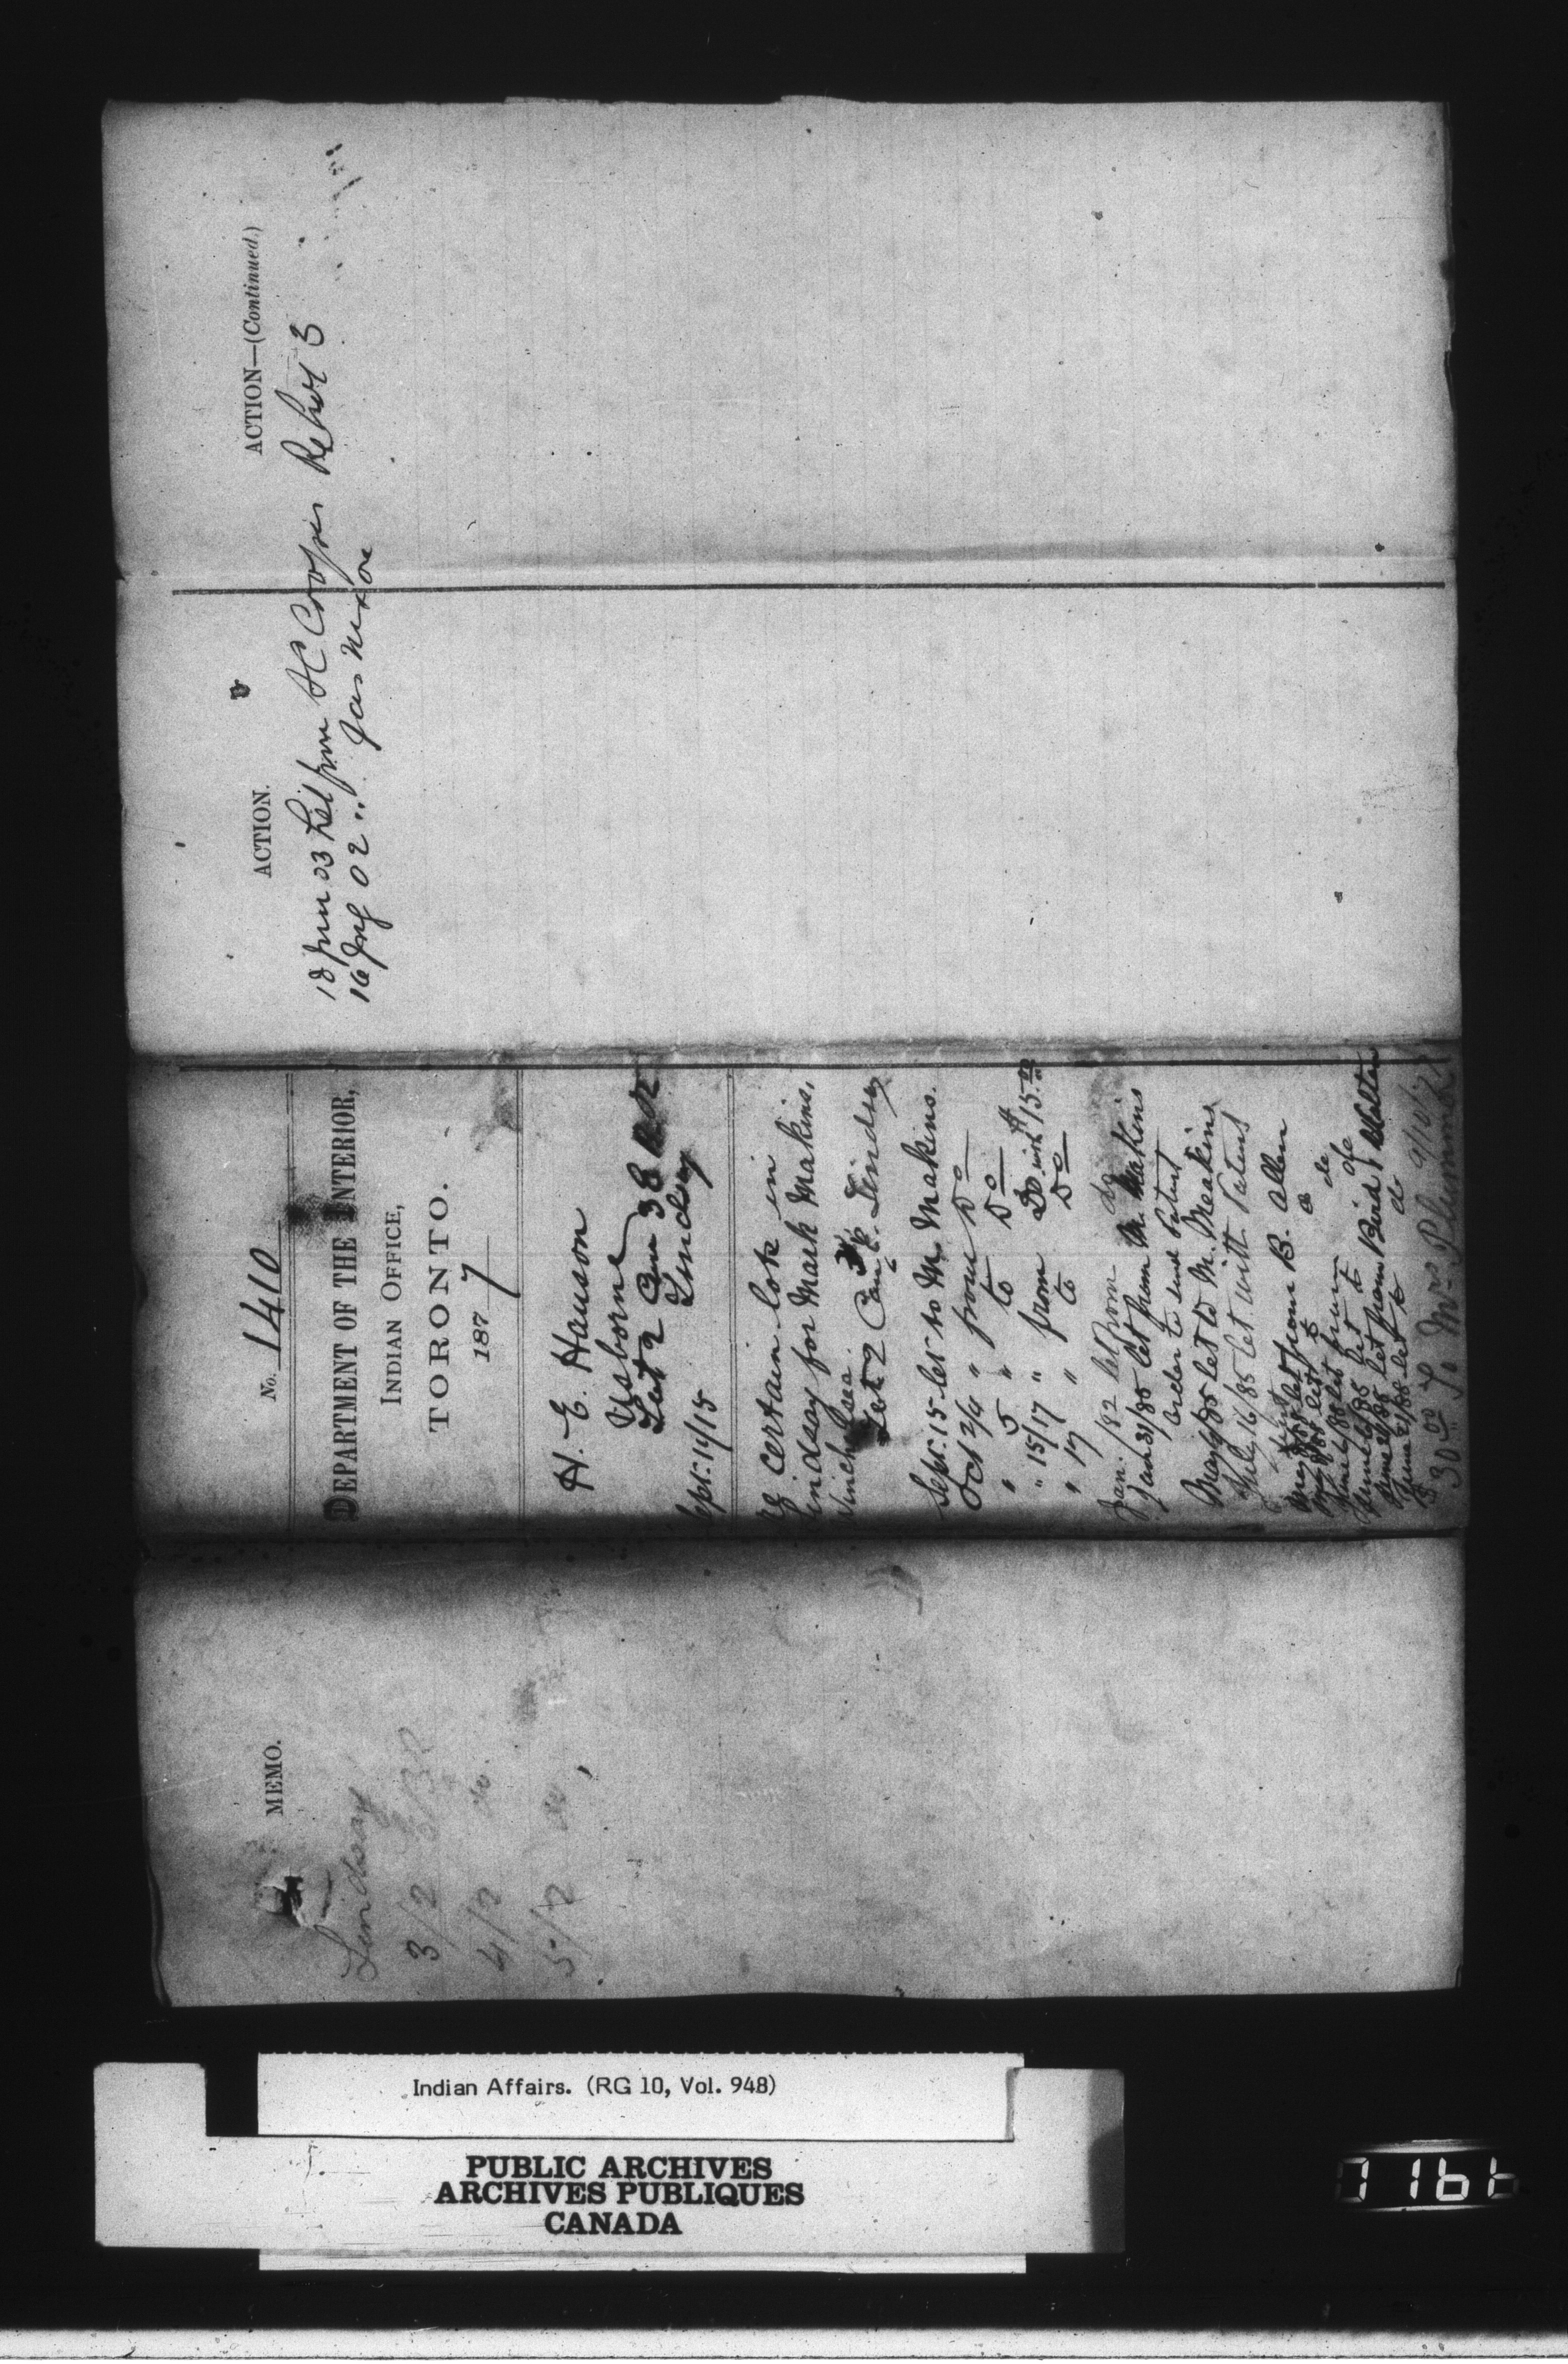 MEMO.
Lindsay
3/2 3/BR
4/2 do.
5/2 do
No. 1410
DEPARTMENT OF THE INTERIOR,
INDIAN OFFICE,
TORONTO.
1877
H. E. Hanson
Usborne
Lot 2 Con 3 & B R
Lindsay
Sept. 14/15
certain lots in
Lindsay for Mark Makins.
Lot 2 Con Lindsay
Sept. 15 let to M. Makins.
Oct 2/4 " from Do
" 5 " to Do
" 15/17 " from Do with $15.00
" 17 " to Do
Jan. /82 let from do
Jan 31/85 let from M. Makins
order to send Patent
let to M. Meakins
July 16/85 let with Patent
let from B. Allen
let to do
let from
June 6/88 let to do
June 21/88 let from Bird & Walton
June 21/88 let to do
$30.00 to Mrs. Plummer
ACTION.
18 03 Let from H C Cooper Rehort 3
16 02 " from Jas Nixon
ACTION—(Continued.)
Indian Affairs. (RG 10, Vol. 948)
PUBLIC ARCHIVES
ARCHIVES PUBLIQUES
CANADA